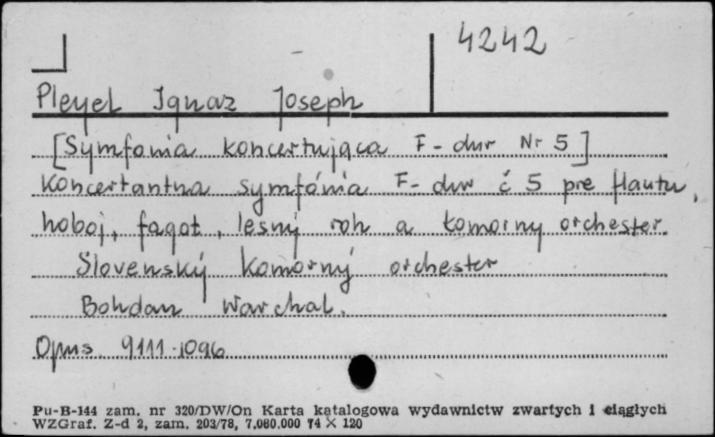 4242
Pleyel Ignaz Joseph
[Symfonia koncertująca F-dur Nr 5]
Koncertantna symfónia F-dur č 5 pre flautu,
hoboj, fagot, lesný roh a komorny orchester.
Slovenský Komorný orchester
Bohdan Warchal.
Opus 9111·1096
Pu-B-144 zam. nr 320/DW/On Karta katalogowa wydawnictw zwartych i ciągłych
WZGraf. Z-d 2, zam. 203/78, 7.080.000 74 × 120